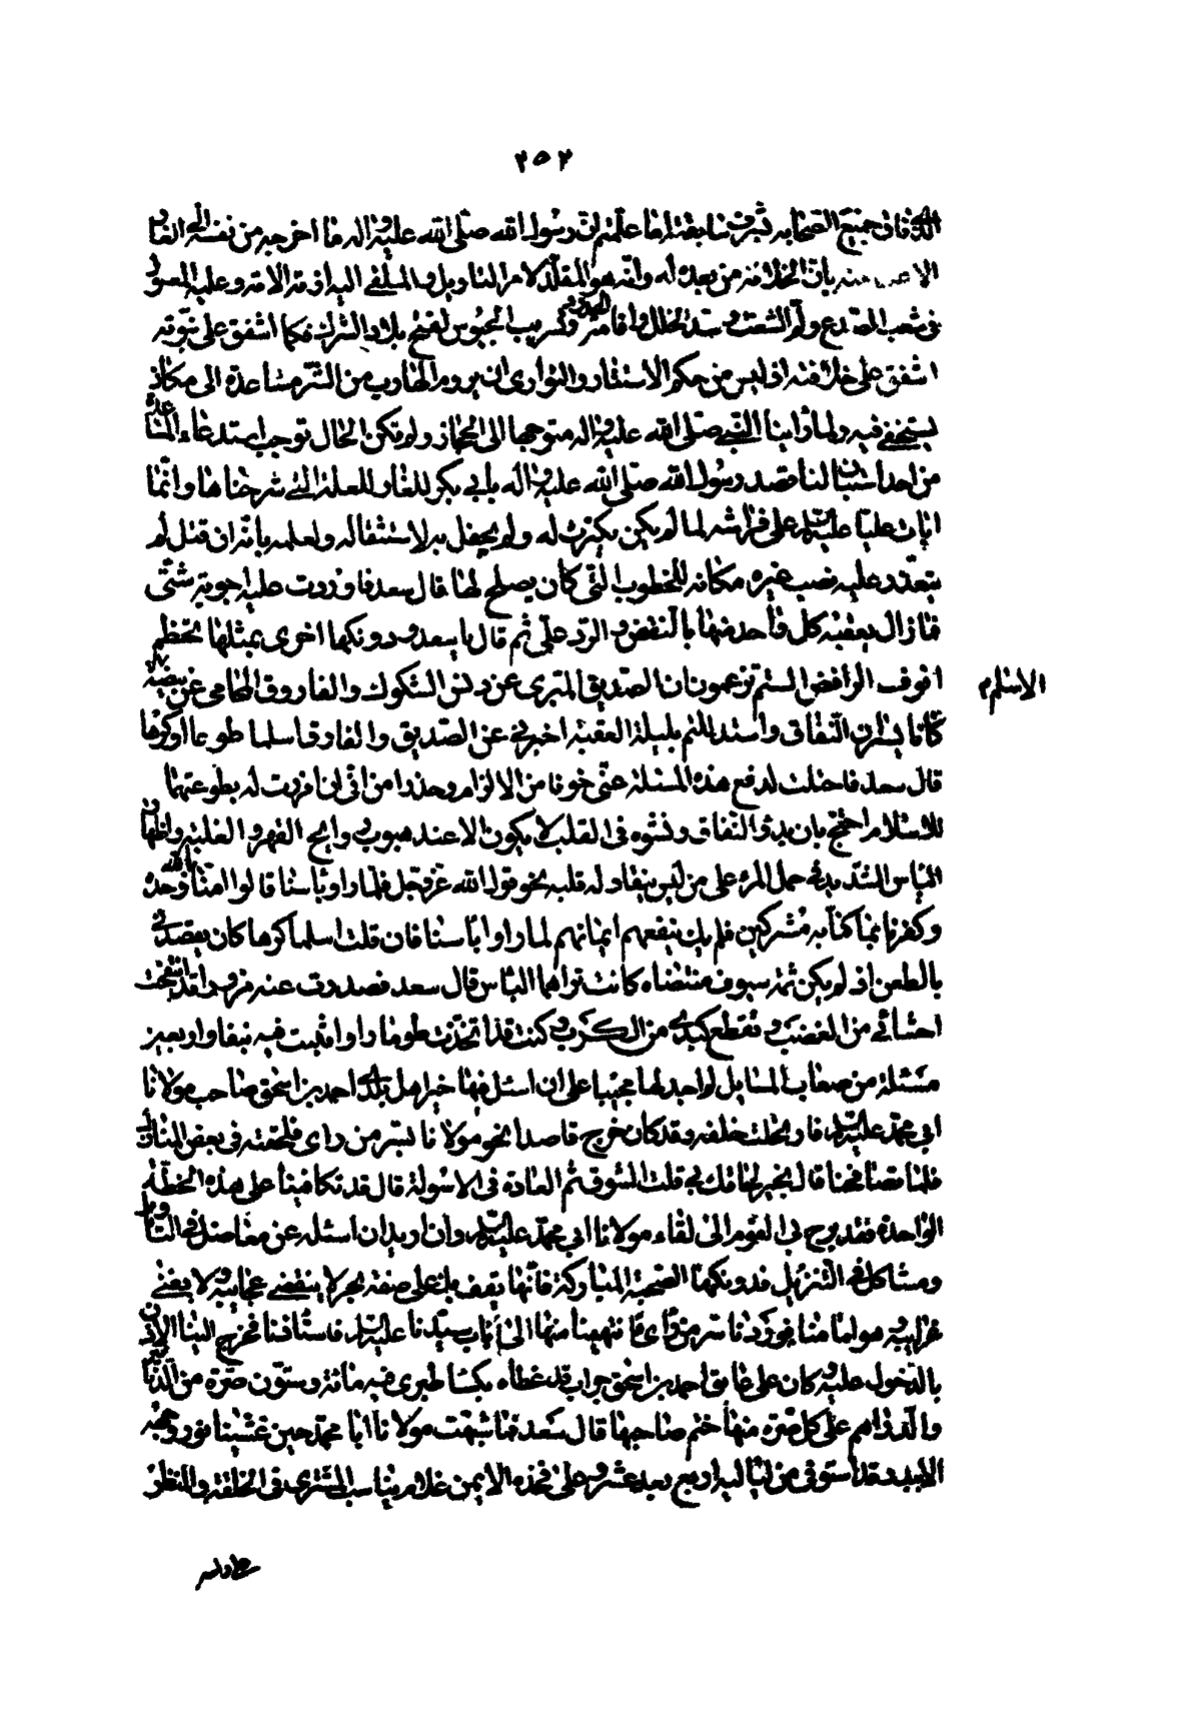 ٢٥٢
الذي فاق جميع الصحابه بشرف سابقته اما علمتم ان رسول الله صلى الله عليه واله ما اخرجه من نفسه الى الغار
الا علما منه بان الخلافة من بعده له وانه هو المقلد لامر التاويل والملقى اليه ازمة الامة وعليه المعول
فى شعب الصدع ولم الشعث وسد الخلل واقامة الحدود وتسريب الجيوش لفتح بلاد الشرك فكما اشفق على نبوته
اشفق على خلافته اذ ليس من حكم الاستتار والتوارى ان يروم الهارب من الشر مساعدة الى مكان
يستخفى فيه ولما راينا النبى صلى الله عليه واله متوجها الى الانجحاز ولم تكن الحال توجب استدعاء المساعدة
من احد استبان لنا قصد رسول الله صلى الله عليه واله بابى بكر للغار للعلة التى شرحناها وانما
ابات عليا عليه السلام على فراشه لما لم يكن يكترث له ولم يحفل به لاستثقاله ولعلمه بانه ان قتل لم
يتعذر عليه نصب غيره مكانه للخطوب التى كان يصلح لها قال سعد فاوردت عليه اجوبة شتى
فما زال يعقب كل واحد منها بالنقض والرد على ثم قال يا سعد ودونكها اخرى بمثلها تخطم
انوف الروافض الستم تزعمون ان الصديق المبرى عن دنس الشكوك والفاروق المحامى عن بيضة
الاسلام
كانا يسران النفاق واستدللتم بليلة العقبة اخبرنى عن الصديق والفاروق اسلما طوعا او كرها
قال سعد فاحتلت لدفع هذه المسئلة عنى خوفا من الالزام وحذرا من انى ان اقررت له بطوعهما
للاسلام احتج بان بدؤ النفاق ونشوه فى القلب لا يكون الا عند هبوب روايح القهر والغلبة واظهار
البأس الشديد فى حمل المرء على من ليس ينقاد له قلبه نحو قول الله عز وجل فلما راوا باسنا قالوا امنا بالله وحده
وكفرنا بما كنا به مشركين فلم يك ينفعهم ايمانهم لما راوا باسنا فان قلت اسلما كرها كان يقصدنى
بالطعن اذ لم يكن ثمة سيوف منتضاه كانت تراهما الباس قال سعد فصدرت عنه مزورا قد انتفخت
احشائى من الغضب وتقطع كبدى من الكرب وكنت قد اتخذت طومارا واثبت فيه نيفا واربعين
مسئلة من صعاب المسايل لم اجد لها مجيبا على ان اسئل فيها خير اهل بلدى احمد بن اسحق صاحب مولانا
ابى محمد عليه السلام فارتحلت خلفه وقد كان خرج قاصدا نحو مولانا بسر من راى فلحقته فى بعض المنازل
فلما تصافحنا قال بخير لحاقك بى قلت الشوق ثم العادة فى الاسولة قال قد تكافينا على هذه الخطة
الواحدة فقد برح بى القرم الى لقاء مولانا ابى محمد عليه السلام وان اريد ان اسئله عن معاضل فى التاويل
ومشاكل فى التنزيل فدونكها الصحبة المباركة فانها تقف بك على ضفة بحر لا ينقضى عجايبه ولا يفنى
غرايبه وهو امامنا فوردنا سر من راى فانتهينا منها الى باب سيدنا عليه السلام فاستاذنا فخرج الينا الاذن
بالدخول عليه وكان على عاتق احمد بن اسحق جراب قد غطاه بكساء طبرى فيه مائة وستون صرة من الدنانير
والدراهم على كل صرة منها ختم صاحبها قال سعد فما شبهت مولانا ابا محمد حين غشينا نور وجهه
الا ببدر قد استوفى من لياليه اربع بعد عشر وعلى فخذه الايمن غلام يناسب المشترى فى الخلقة والمنظر
على راسه